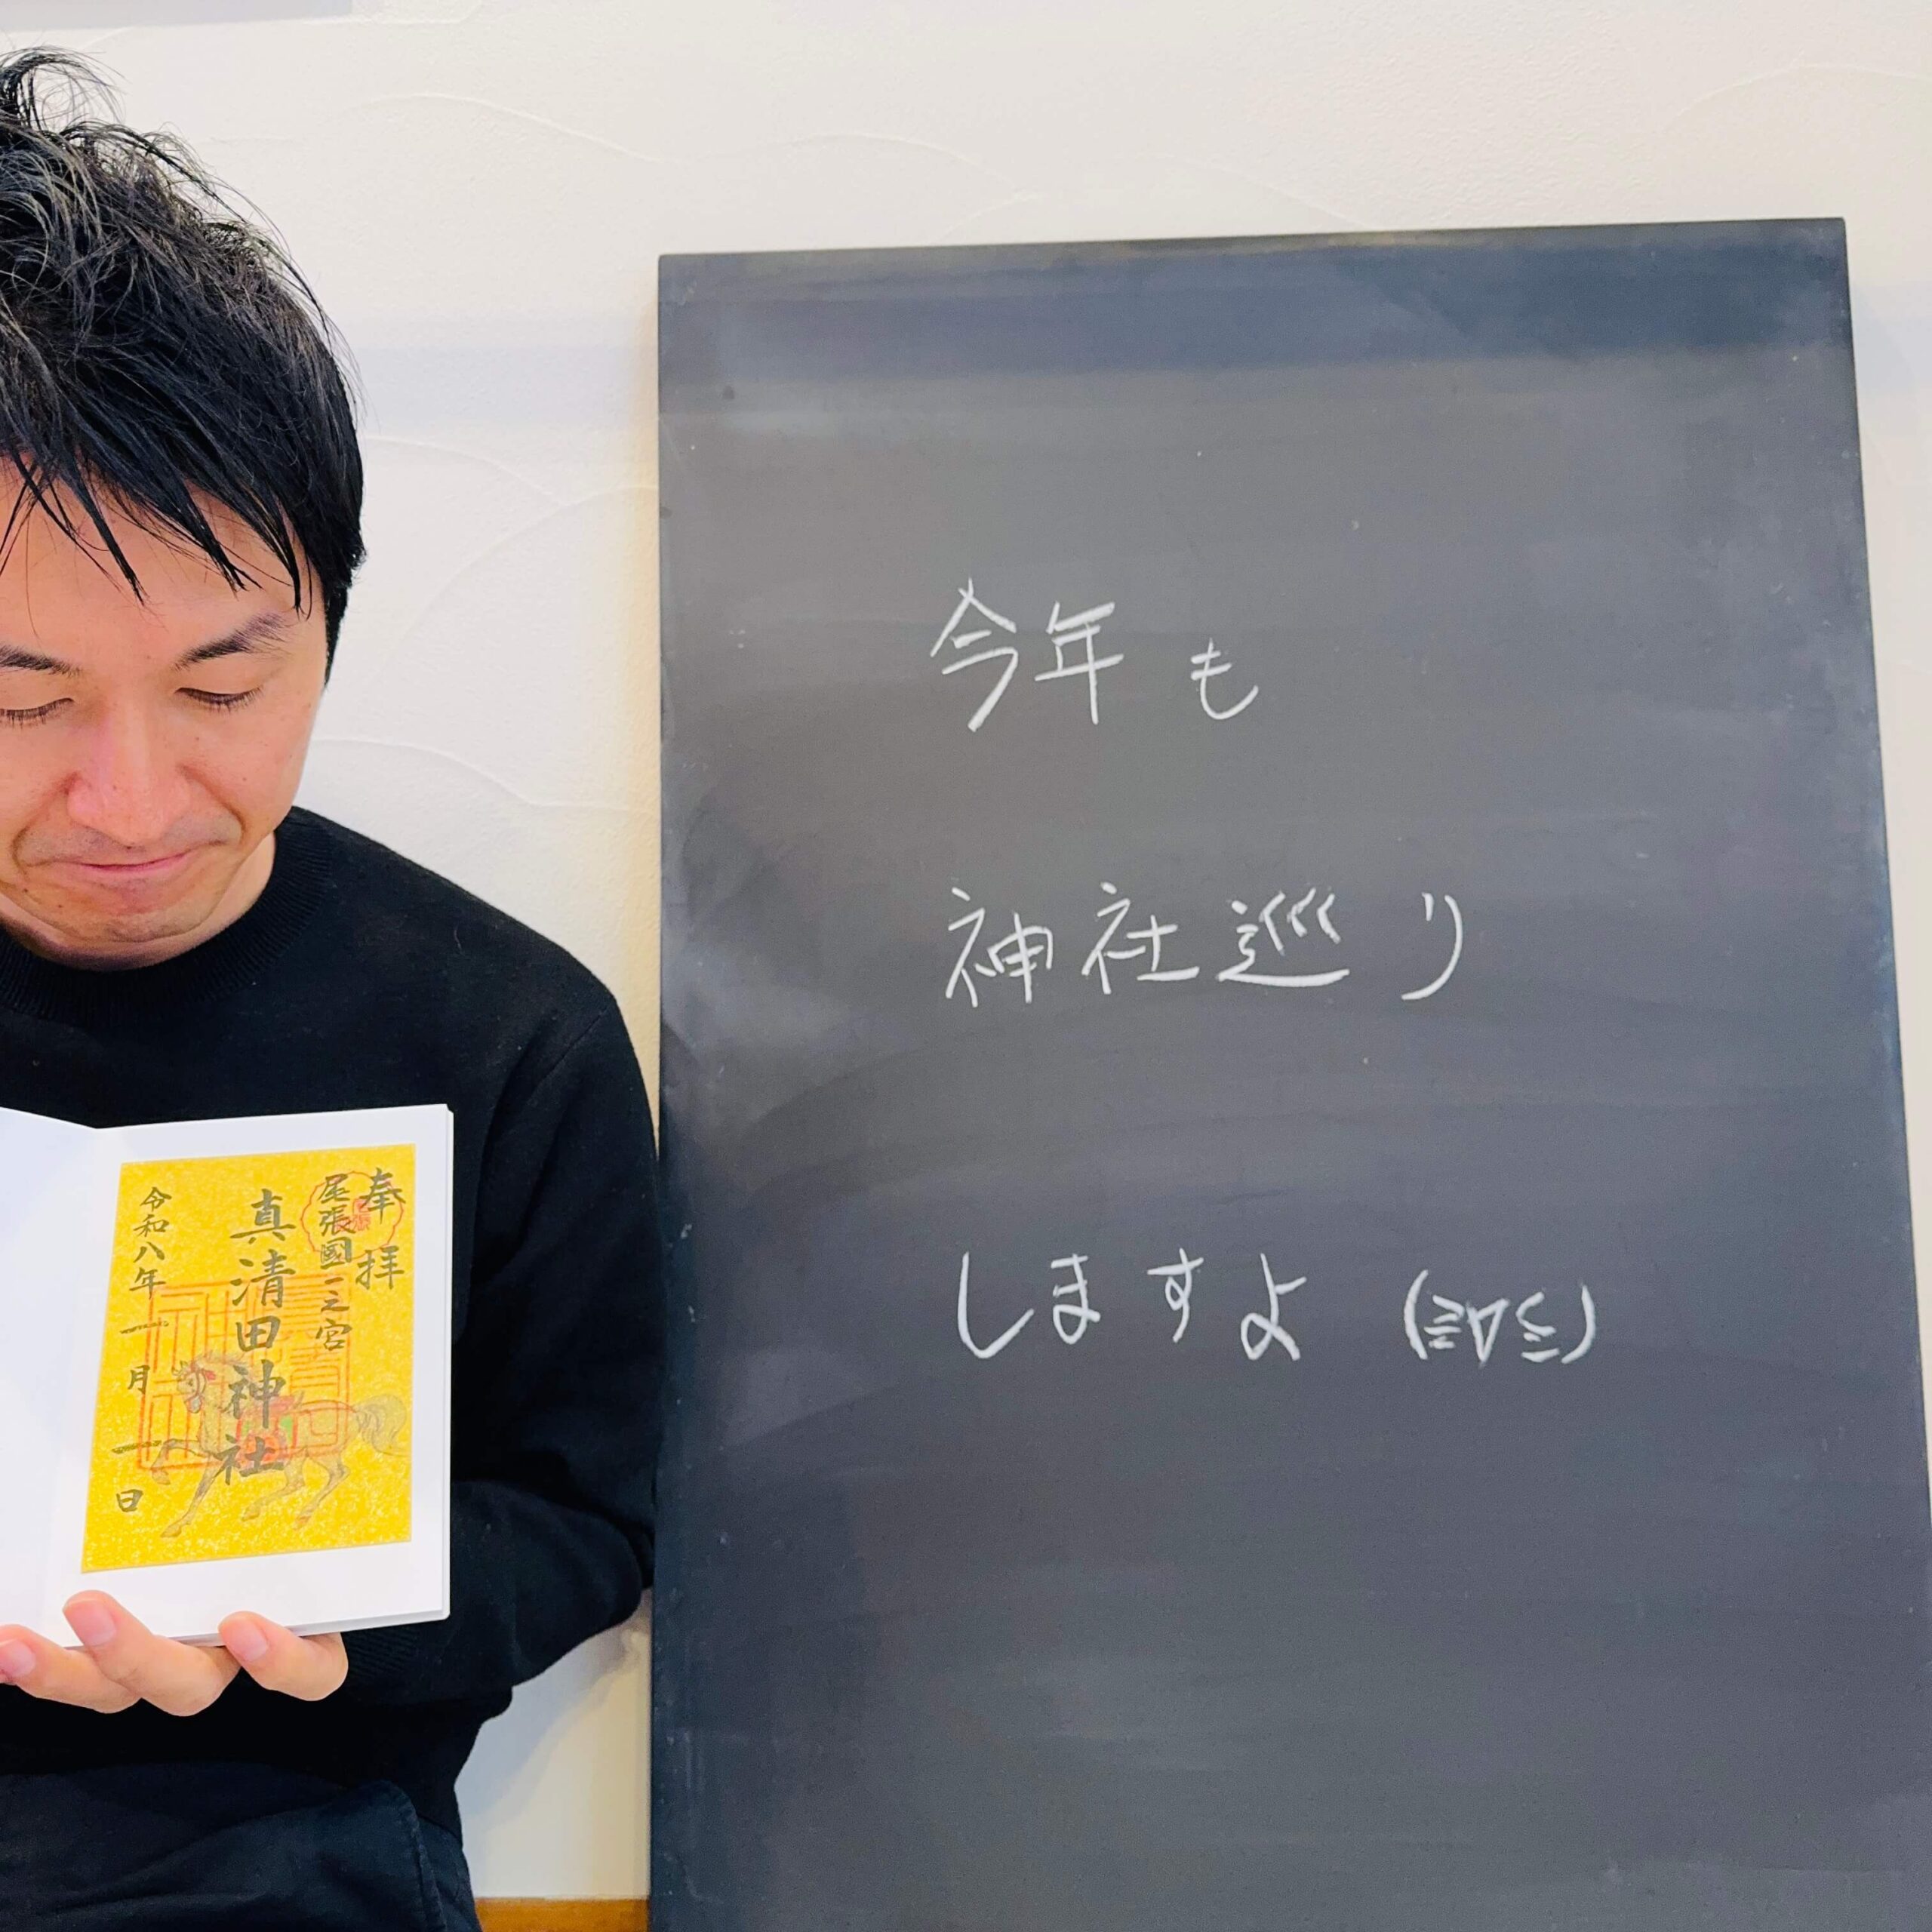 今年も
神社巡り
しますよ (≧∇≦)
奉拝
尾張國一之宮
真清田神社
令和八年一月一日